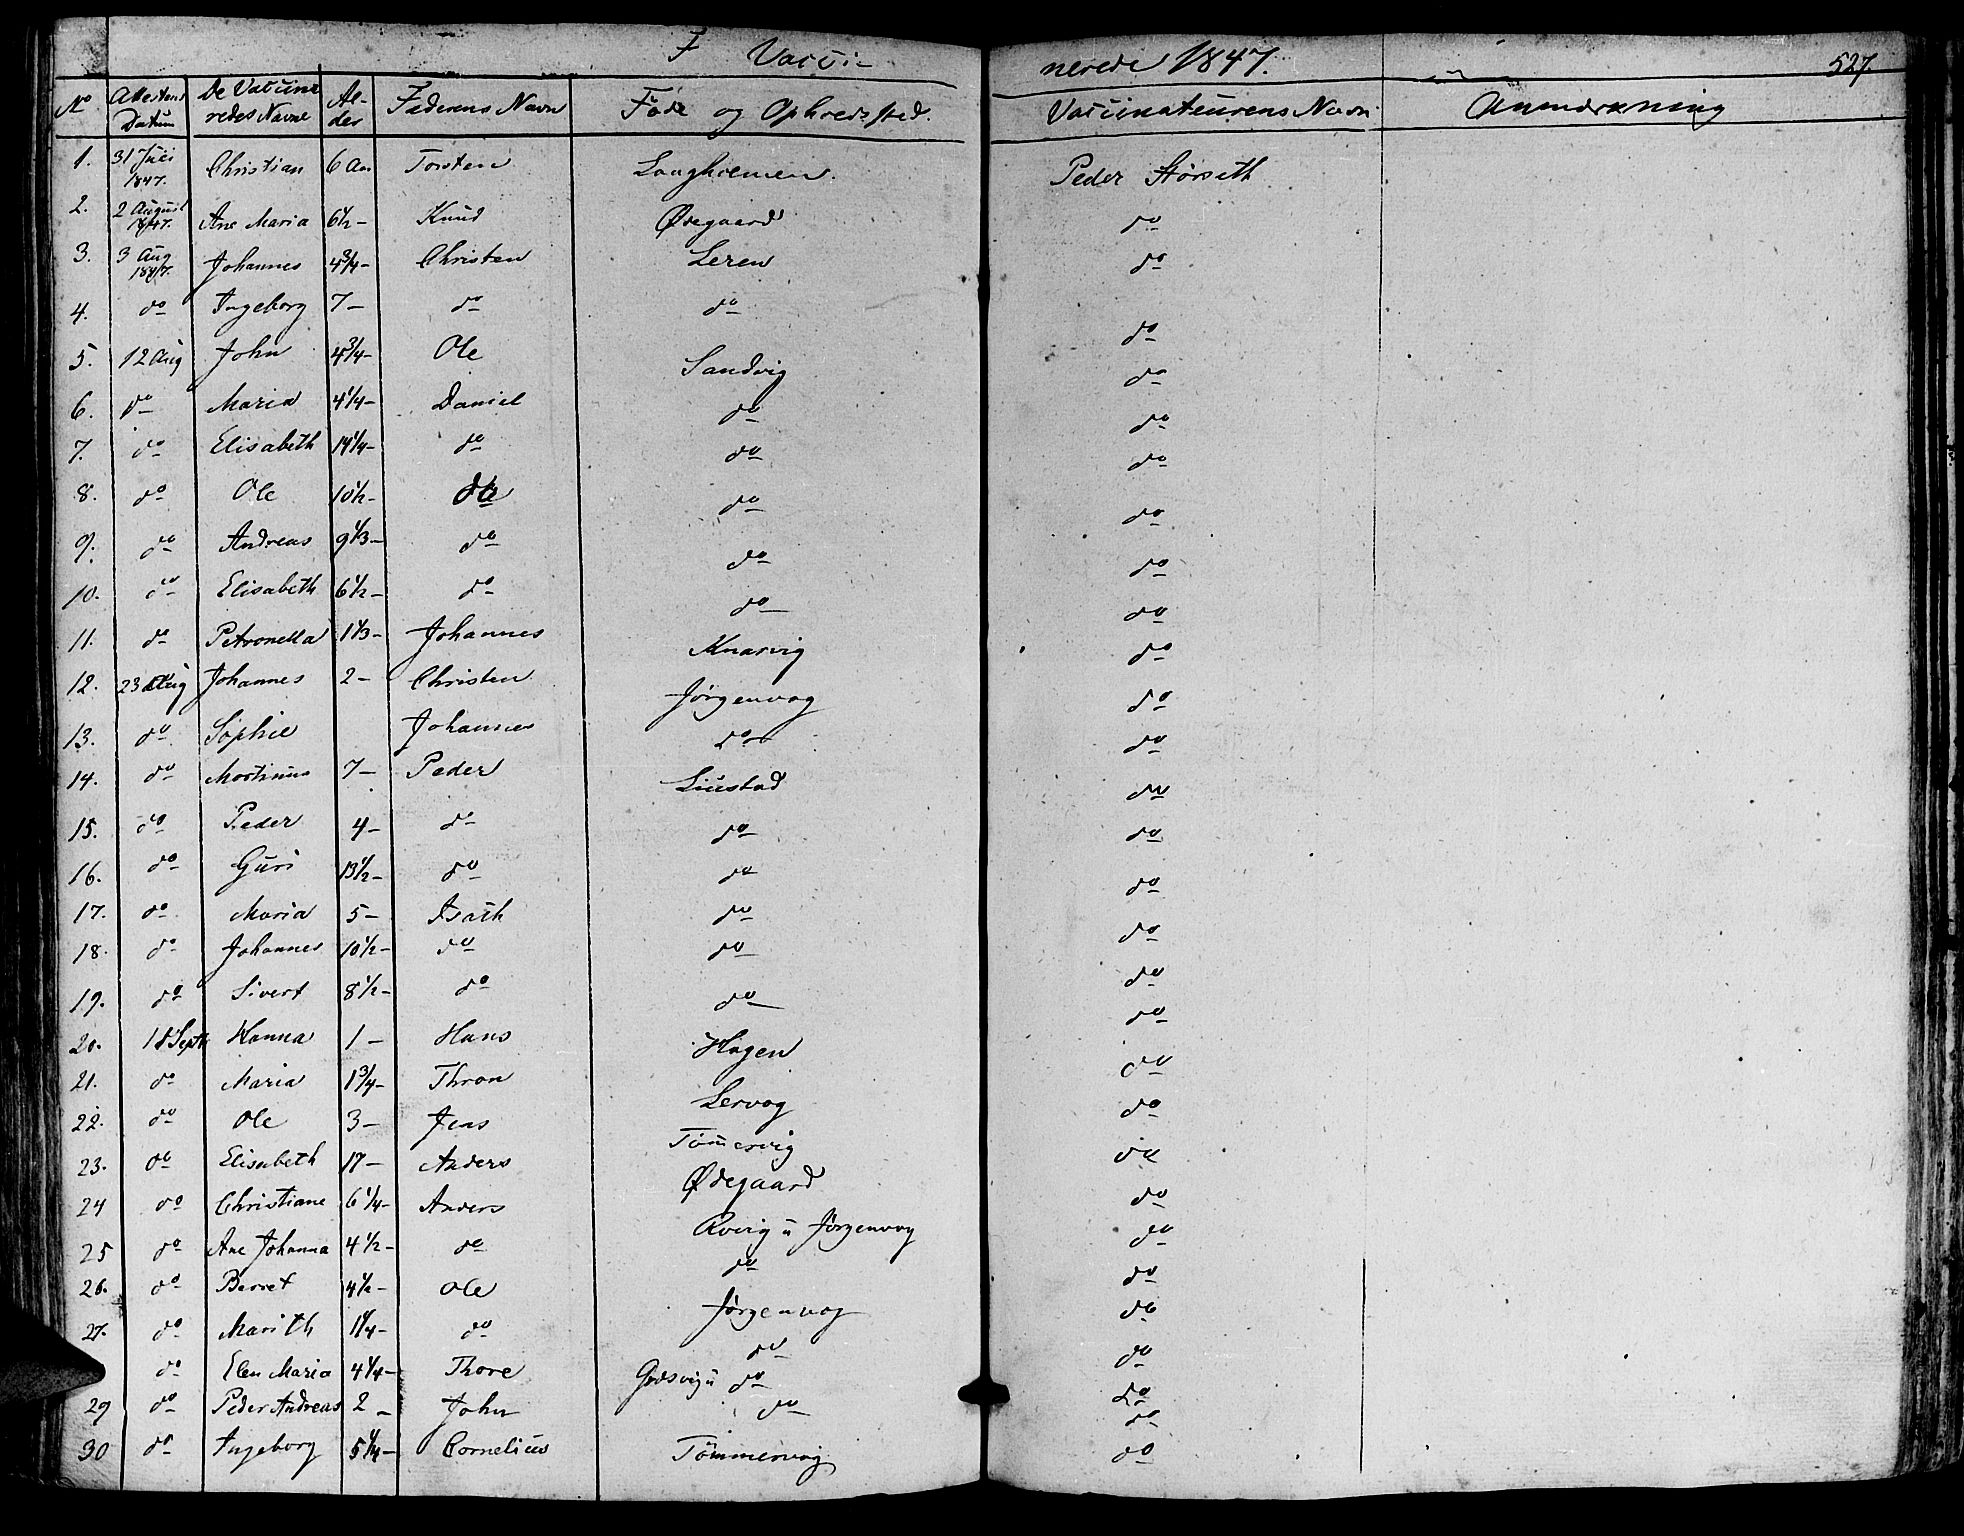 F Vacci- nerede 1847. 527.
No Attestens Datum De Vaccineredes Navne Alder Faderens Navn Føde og Opholdssted. Vaccinateurens Navn Anmærkning
1. 31 Juli 1847. Christian 6 Aar Torsten Langhiemen Peder Størseth
2. 2 August 1847. Ane Maria 6½ - Knud Ødegaard do
3. 3 Aug 1847. Johannes 4¾ - Christen Leren do
4. do Ingeborg 7 - do do do
5. 12 Aug John 4¾ - Ole Sandvig do
6. do Maria 4¼ - Daniel do do
7. do Elisabeth 14¼ - do do do
8. do Ole 10½ - do do do
9. do Andreas 9⅓ - do do do
10. do Elisabeth 6½ - do do do
11. do Petronella 1⅓ - Johannes Knarvig do
12. 23 Aug Johannes 2 - Christen Jørgenvog do
13. do Sophie Johannes do do
14. do Martinus 7 - Peder Liustad do
15. do Peder 4 - do do do
16. do Guri 13½ - do do do
17. do Maria 5 - Isach do do
18. do Johannes 10½ - do do do
19. do Sivert 8½ - do do do
20. 18 Sept Hanna 1 - Hans Hagen do
21. do Maria 1¾ - Thron Lervog do
22. do Ole 3 - Jens Tömervig do
23. do Elisabeth 17 - Anders Ødegaard do
24 do Christiane 6¼ - Anders Rvig u Jørgenvog do
25 do Ane Johanna 4½ - do do do
26. do Berret 4½ - Ole Jørgenvog do
27. do Marith 1¼ - do do do
do Elen Maria 4¼ - Thore Grøsvig u do do
29 do Peder Andreas 2 - John do do
30 do Ingeborg 5¼ - Cornelius Tömmervog do